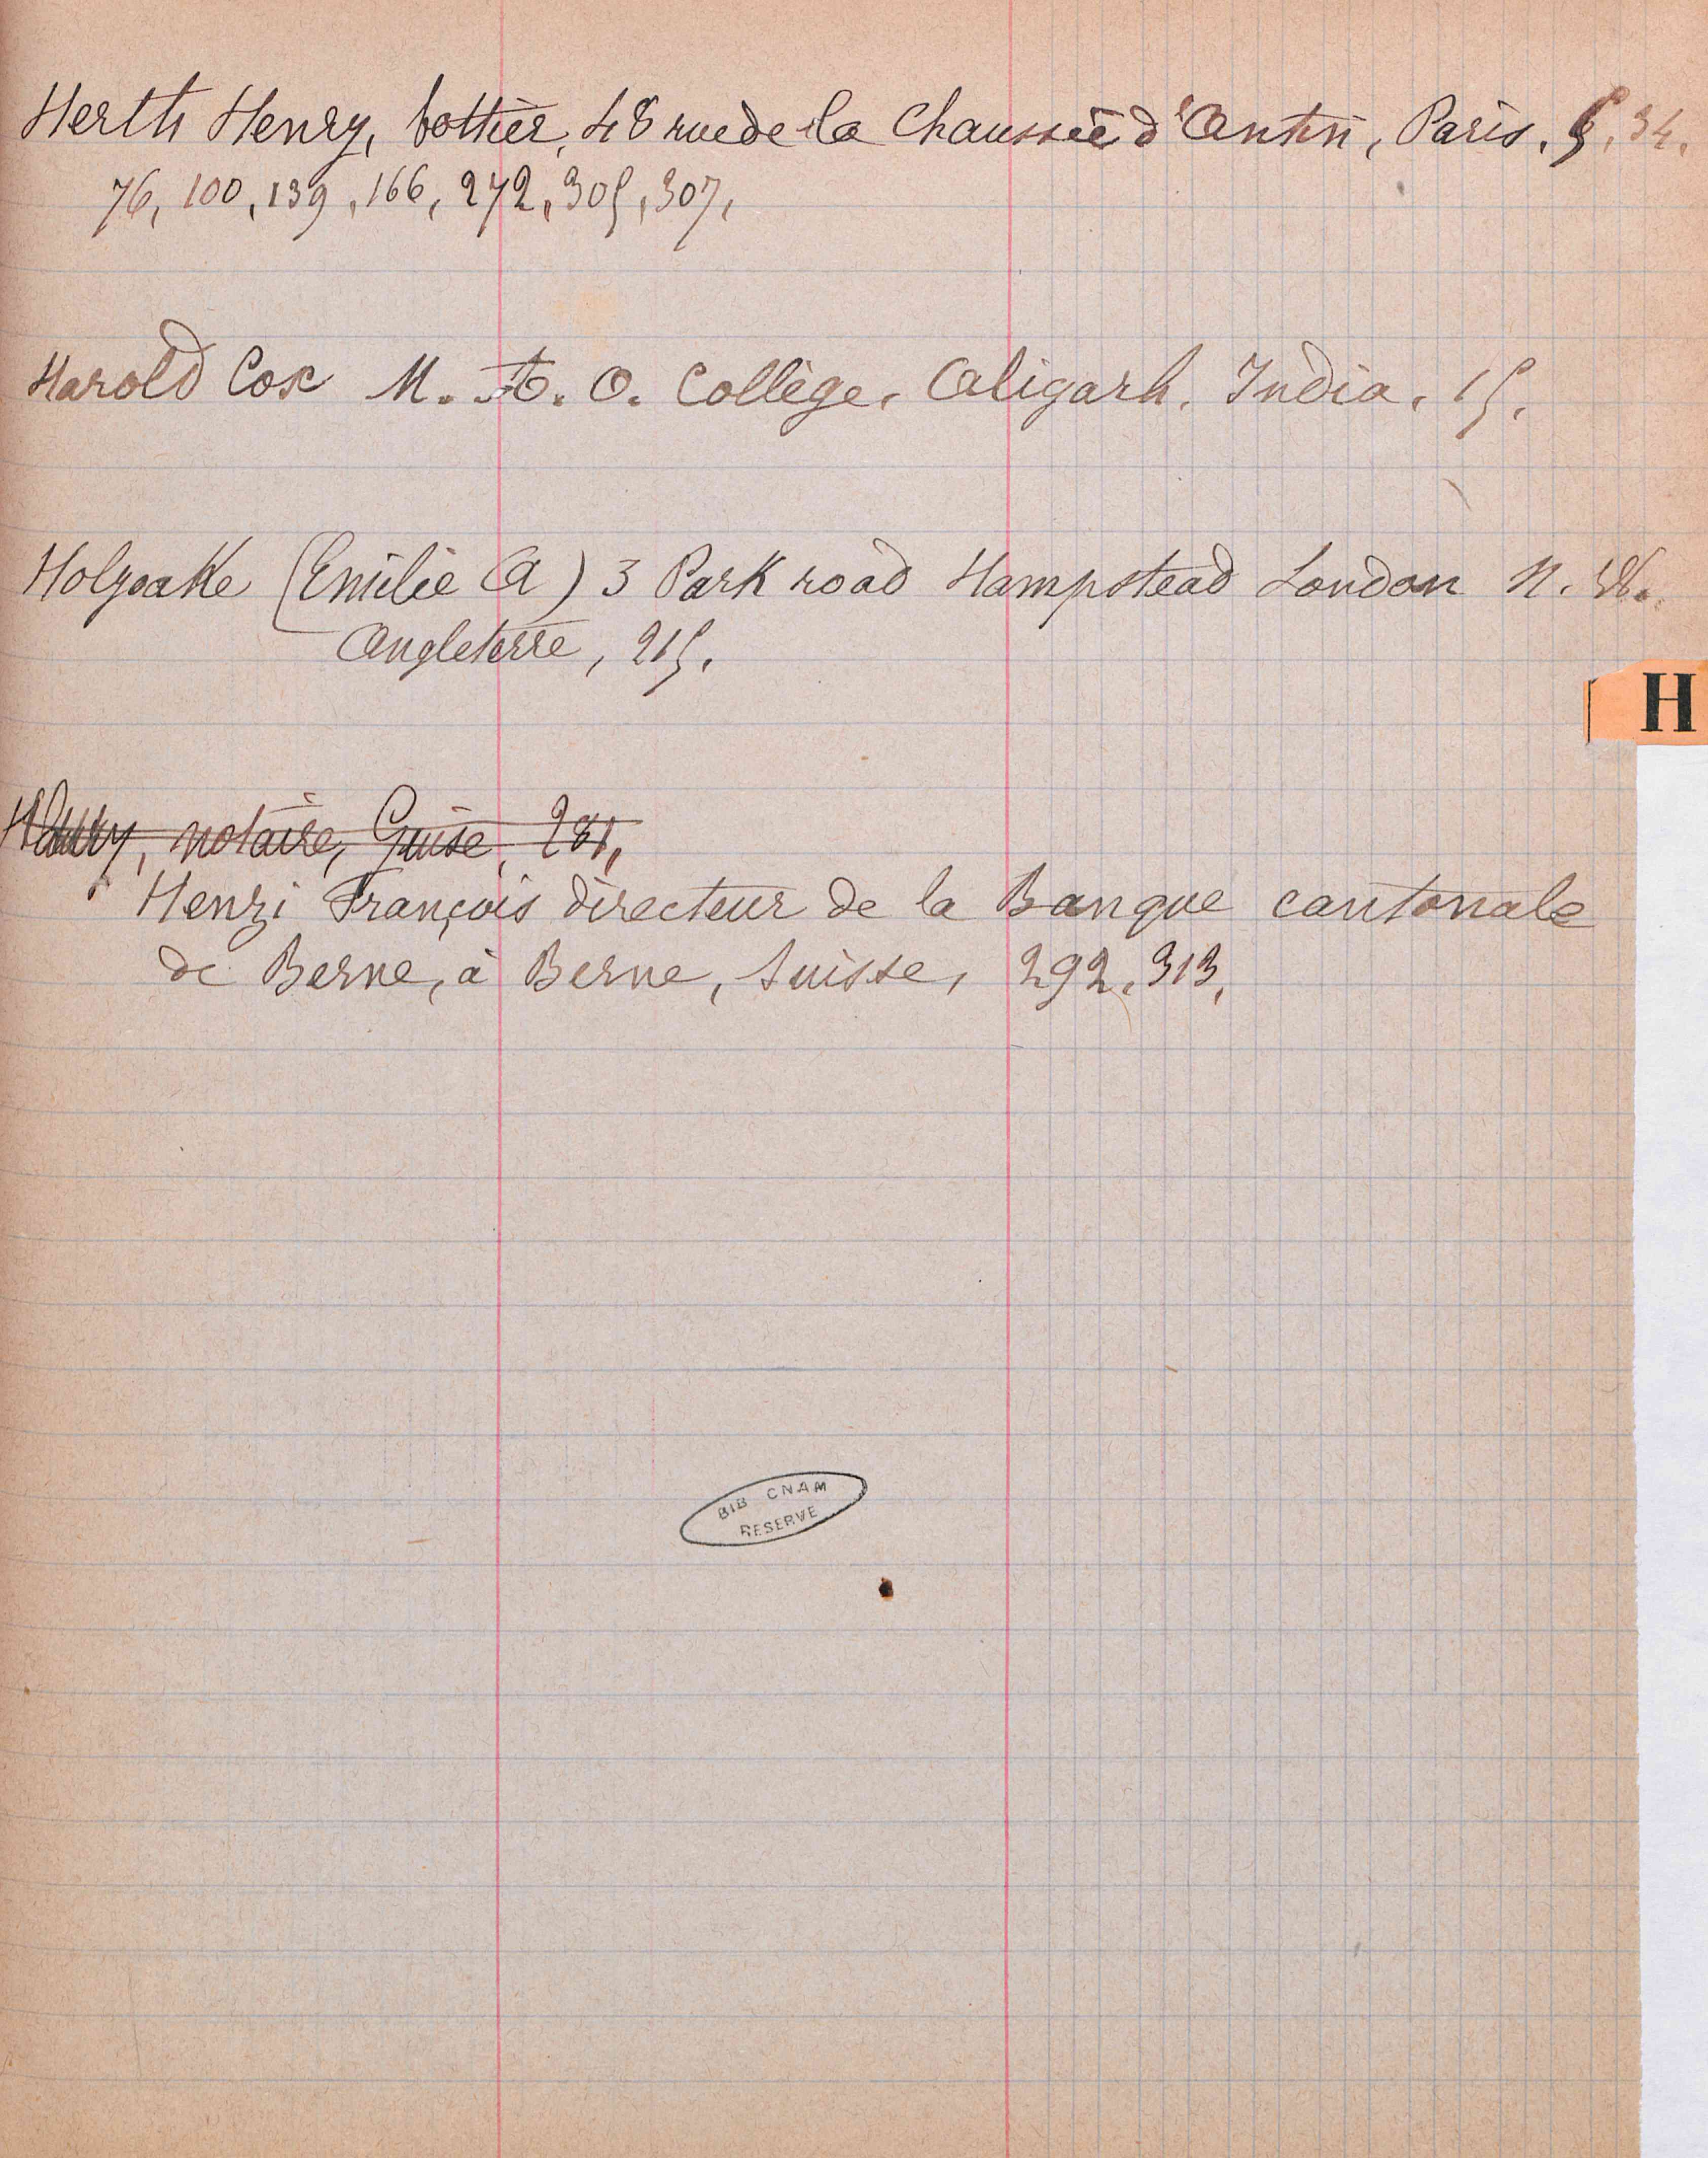 Herth Henry, bottier, 48 rue de la Chaussée d'Antin, Paris. 5, 34,
76, 100, 139, 166, 272, 305, 307,
Harold Cox M. A. O. Collège, Aligarh. India. 15.
Holyoake (Emilie A) 3 Park road Hampstead London N. W.
Angleterre, 215.
H
notaire, Guise, 281,
Henzi François directeur de la Banque cantonale
de Berne, à Berne, Suisse, 292, 313,
BIB CNAM
RESERVE